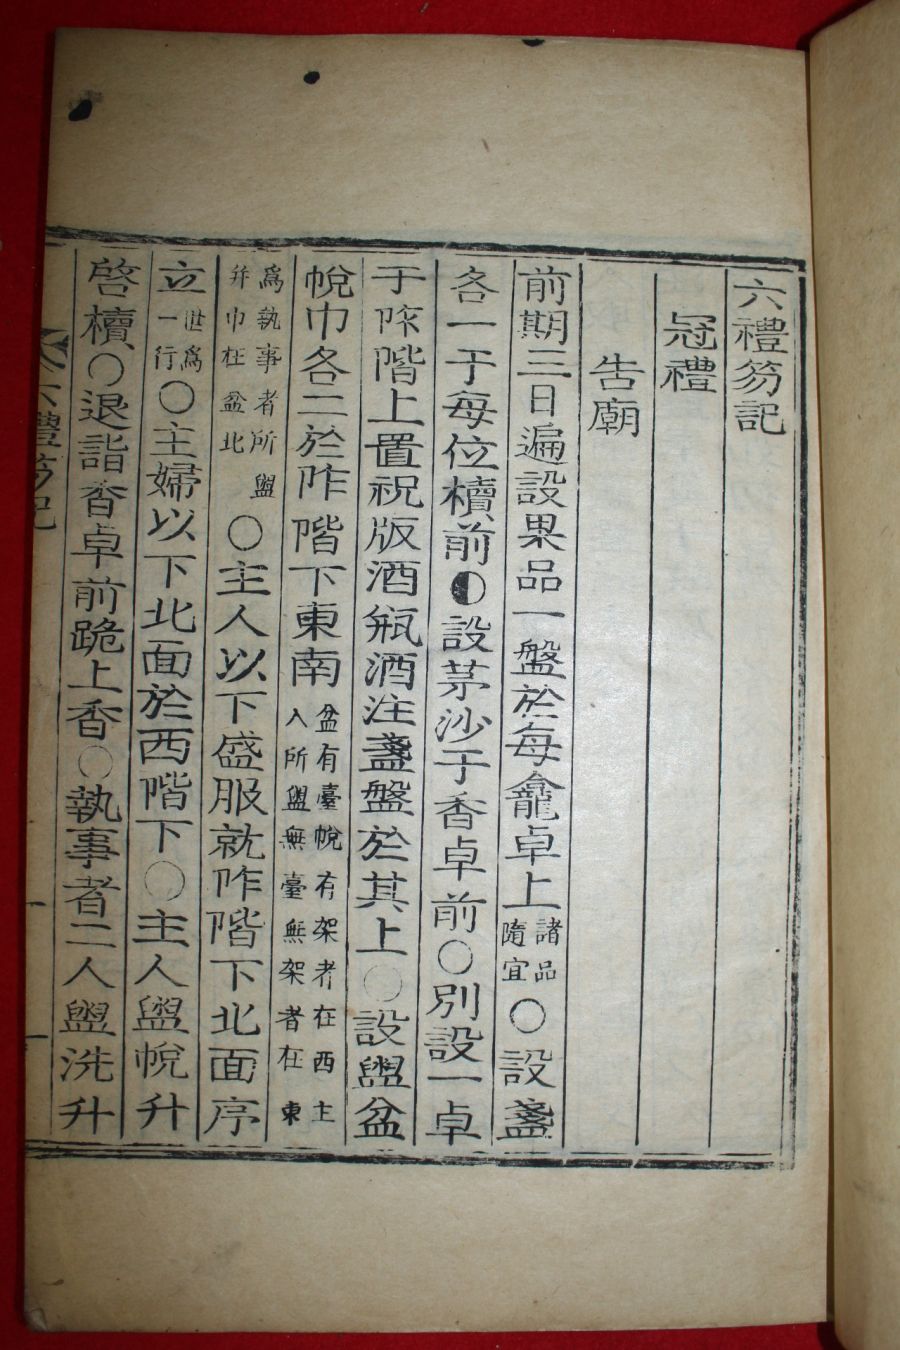 六禮笏記
冠禮
告廟
前期三日遍設果品一盤於每龕卓上諸品隨宜○設盞
各一于每位櫝前◐設茅沙于香卓前○別設一卓
于阼階上置祝版酒瓶酒注盞盤於其上○設盥盆
帨巾各二於阼階下東南盆有臺帨有架者在西主人所盥無臺無架者在東
爲執事者所盥幷巾在盆北○主人以下盛服就阼階下北面序
立世爲一行○主婦以下北面於西階下○主人盥帨升
啓櫝○退詣香卓前跪上香○執事者二人盥洗升
六禮笏記